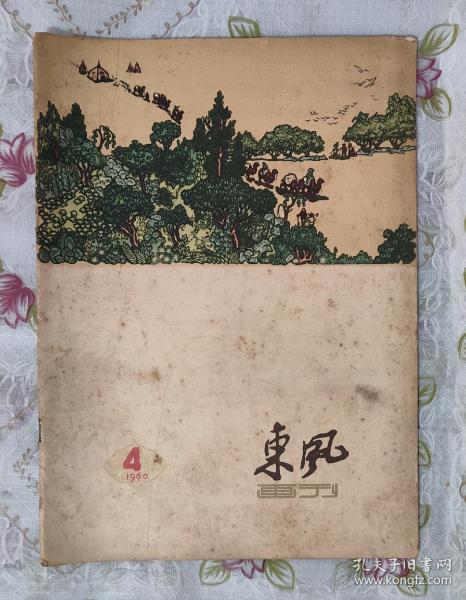 東風
画刊
4
1960
孔夫子旧书网
www.kongfz.com